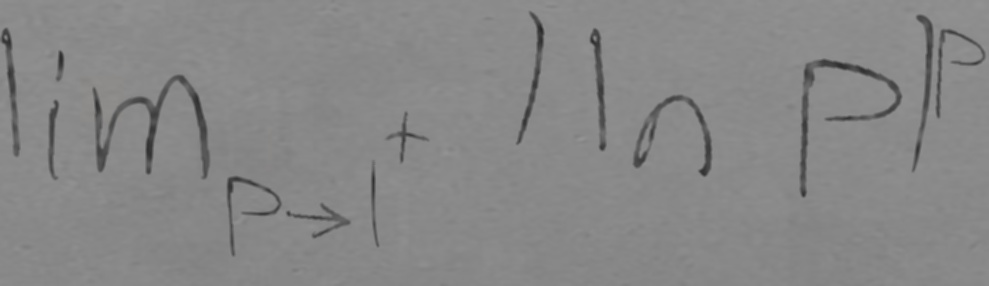 lim_{p→1^+} |ln p|^p